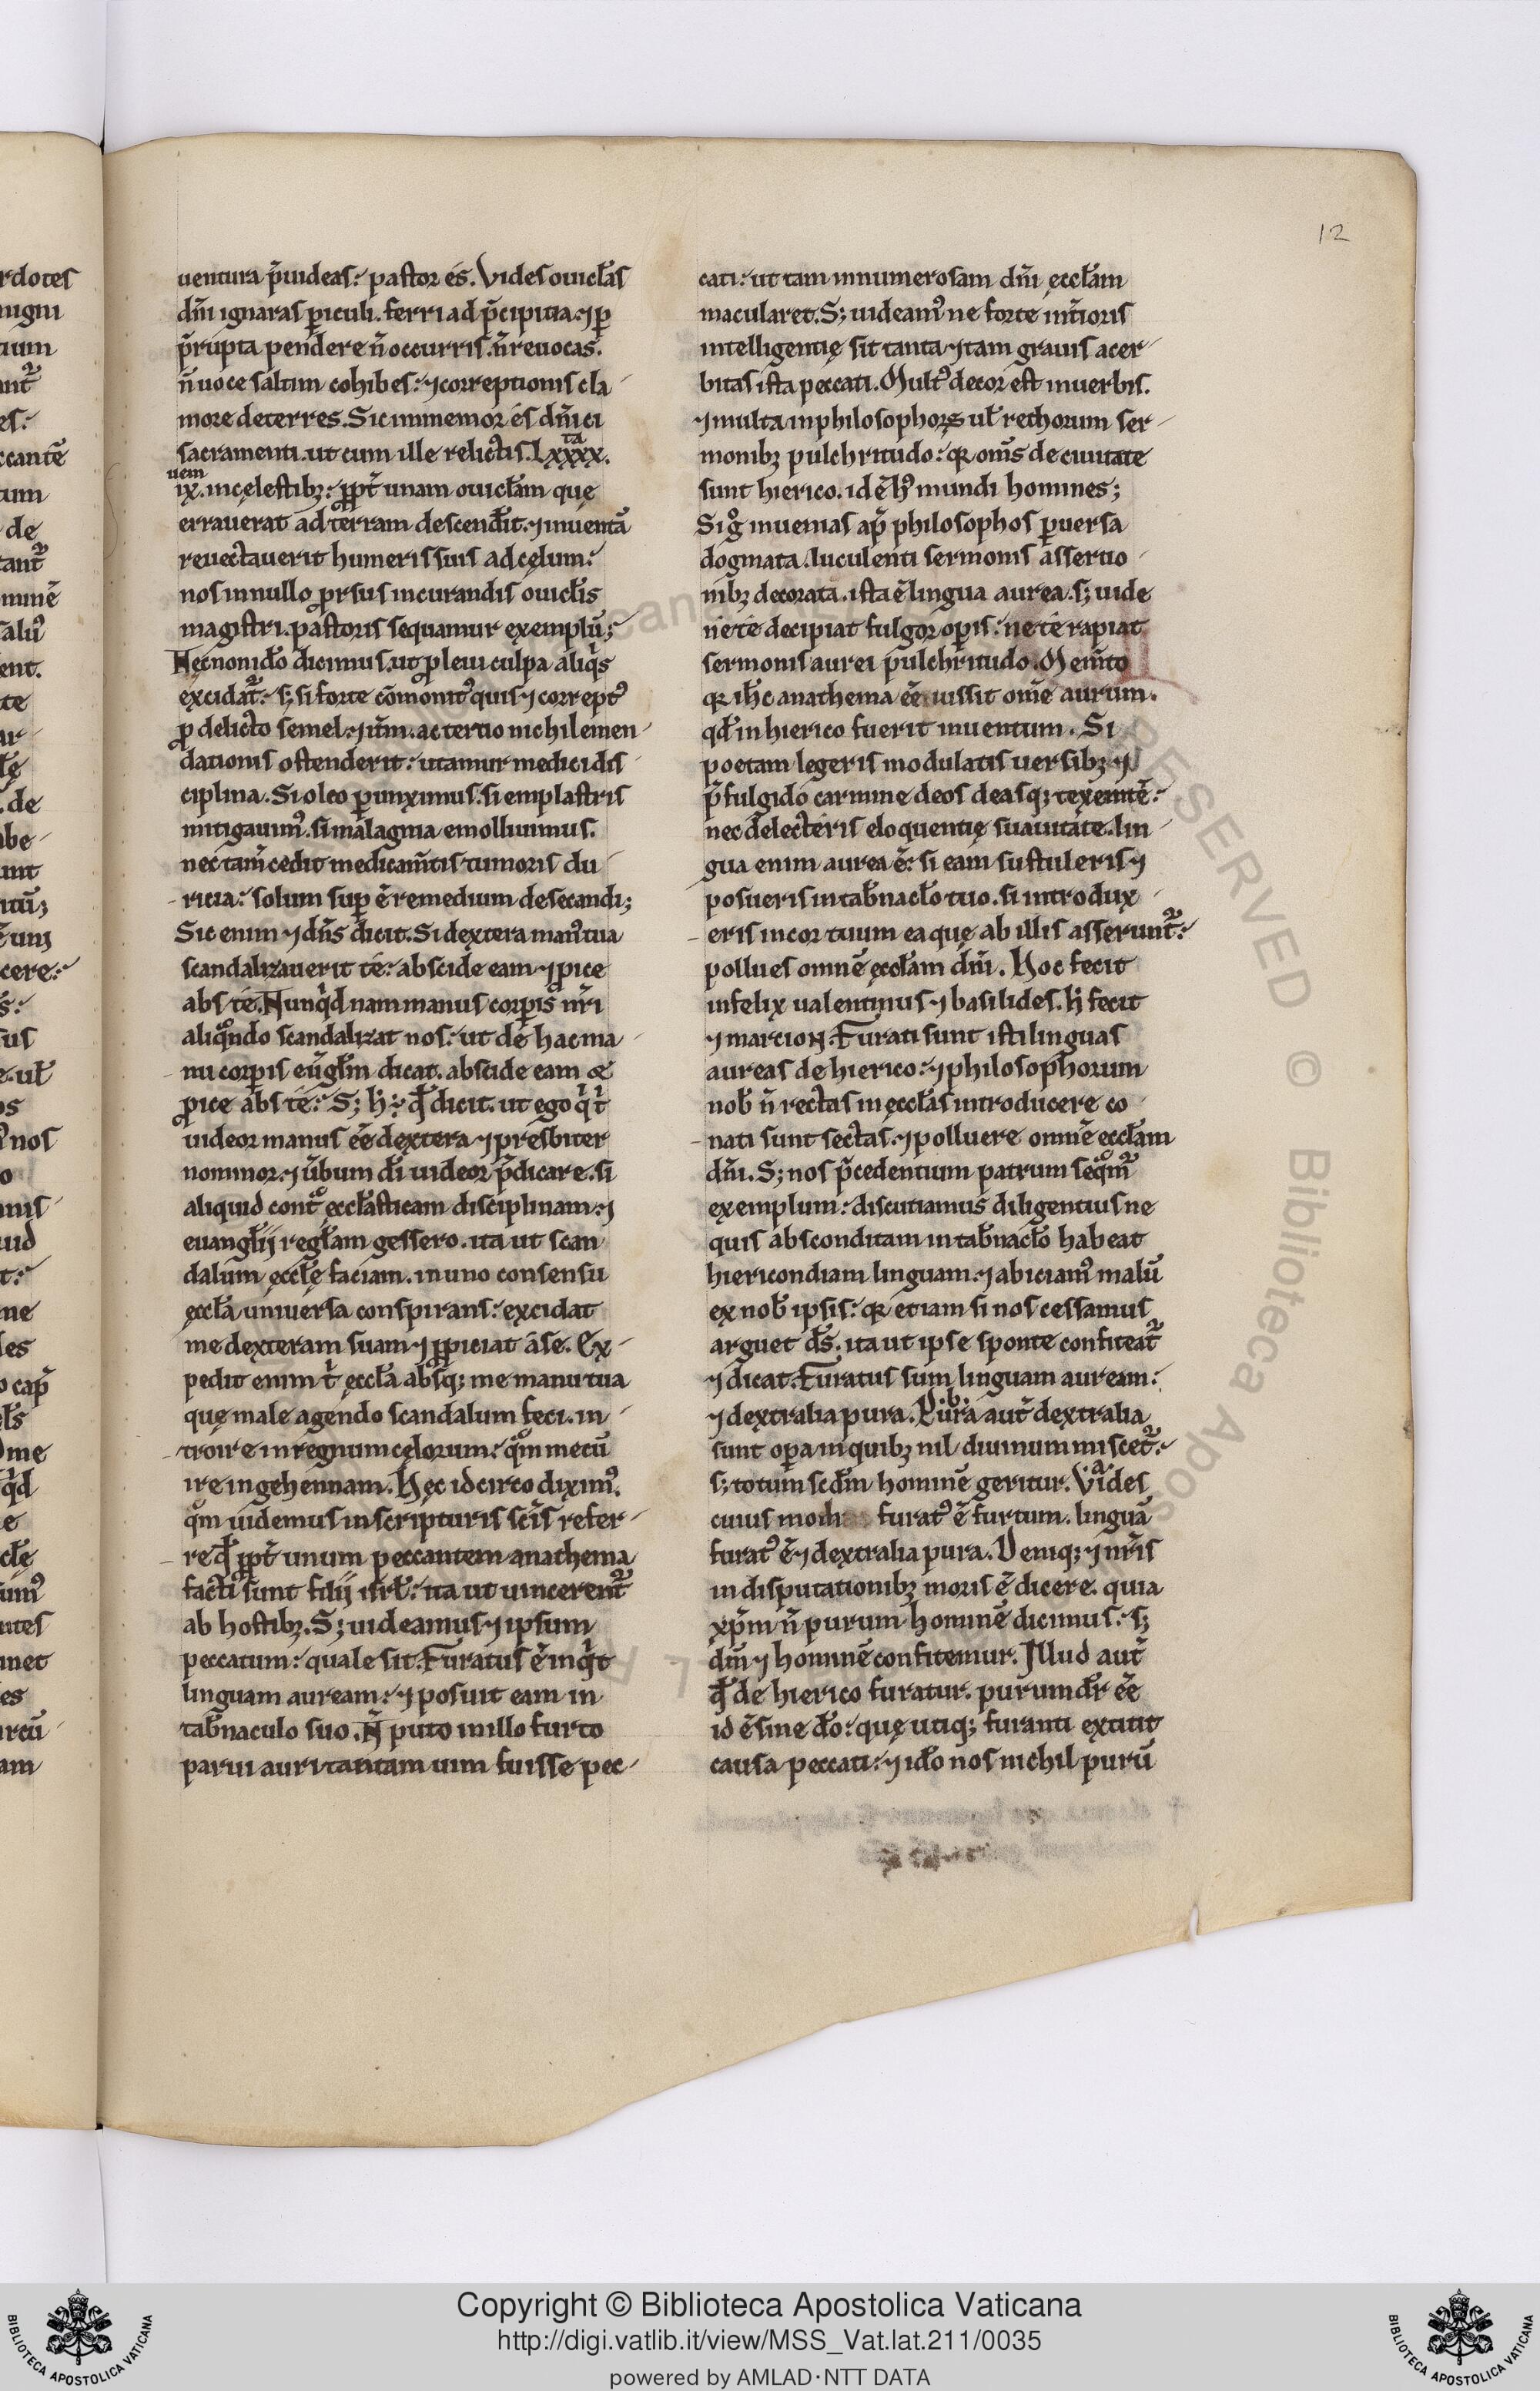 12
uentura p̄uideas. pastor és. Vides ouicl̄as
dn̄i ignaras ꝑiculi. ferri ad p̄cipitia. ⁊ ꝑ
p̄rupta pendere n̄ occurris. n̄ reuocas.
n̄ uoce saltim cohibes. ⁊ correptionis cla
more deterres. Sic inmemor és dn̄ici
sacramenti. ut cum ille relictis. Lxxxx.ta
ix.uem in cęlestibꝫ. ꝓpt̄ unam ouicl̄am quę
errauerat ad terram descendit. ⁊ inuentā
reuectauerit humeris suis ad cęlum.
nos in nullo ꝓrsus in curandis ouicl̄is
magistri. pastoris sequamur exemplū;
Hęc non ido̅ dicimus. ut ꝓ leui culpa aliqͥs
excidat᷑. sꝫ si forte cōmonitꝰ quis ⁊ correptꝰ
ꝓ delicto semel. ⁊ itm̄. ac tertio nichil emen
dationis ostenderit. utamur medici dis
ciplina. Si oleo ꝑunximus. si emplastris
mitigauimꝰ. si malagma emolliuimus.
nec tam̄ cedit medicam̄tis tumoris du
ricia. solum suꝑ ē remedium desecandi;
Sic enim ⁊ dn̄s dicit. Si dextera manꝰ tua
scandalizauerit te. abscide eam ⁊ ꝓice
abs te. Nunqͥd nam manus corꝑis nr̄i
aliqͦndo scandalizat nos. ut de hac ma
nu corꝑis eūgl̄m dicat. abscide eam ⁊
ꝓice abs te. Sꝫ h̄ ÷ qd̄ dicit. ut ego qͥ tͥ
uideor manus eē dextera ⁊ presbiter
nominor. ⁊ ūbum dī uideor p̄dicare. si
aliquid contͦ eccl̄asticam disciplinam. ⁊
euangl̄ij regl̄am gessero. ita ut scan
dalum ęccl̄ę faciam. in uno consensu
ęccl̄a uniuersa conspirans. excidat
me dexteram suam ⁊ ꝓpiciat a se. Ex
pedit enim tͥ ęccl̄a absqꝫ me manu tua
quę male agendo scandalum feci. in
troire in regnum cęlorum. qͦm mecū
ire in gehennam. Hęc idcirco diximꝰ.
qͦm uidemus in scripturis scīs refer
re qd̄ ꝓpt̄ unum peccantem anathema
facti sunt filij isrl̄. ita ut uincerent᷑
ab hostibꝫ. Sꝫ uideamus ⁊ ipsum
peccatum. quale sit. Furatus ē inqͥt
linguam auream. ⁊ posuit eam in
tab̄naculo suo. N̄ puto in illo furto
parui auri tantam uim fuisse pec
cati. ut tam innumerosam dn̄i ęccl̄am
macularet. Sꝫ uideamꝰ ne forte int̄ioris
intelligentię sit tanta ⁊ tam grauis acer
bitas ista peccati. Multꝰ decor est in uerbis.
⁊ multa in philosophoꝝ ul̄ rethorum ser
monibꝫ pulchritudo. qꝛ om̄s de ciuitate
sunt hierico. id ē hꝰ mundi homines;
Si gͦ inuenias ap̄ philosophos ꝑuersa
dogmata. luculenti sermonis assertio
nibꝫ decorata. ista ē lingua aurea. sꝫ uide
ne te decipiat fulgor oꝑis. ne te rapiat
sermonis aurei pulchritudo. Mem̄to
qꝛ ih̄c anathema eē iussit om̄e aurum.
qd̄ in hierico fuerit inuentum. Si
poetam legeris modulatis uersibꝫ ⁊
p̄fulgido carmine deos deasqꝫ texentē.
nec delecteris eloquentię suauitate. lin
gua enim aurea ē. si eam sustuleris ⁊
posueris in tab̄nacl̄o tuo. si introdux
eris in cor tuum ea quę ab illis asserunt᷑.
pollues omnē ęccl̄am dn̄i. Hoc fecit
infelix ualentinus ⁊ basilides. h̄ fecit
⁊ marcion. Furati sunt isti linguas
aureas de hierico. ⁊ philosophorum
nob̄ n̄ rectas in ęccl̄as introducere co
nati sunt sectas. ⁊ polluere omnē eccl̄am
dn̄i. Sꝫ nos p̄cedentium patrum seqͦm᷑
exemplum. discutiamus diligentius ne
quis absconditam in tab̄nacl̄o habeat
hiericondiam linguam. ⁊ abiciamꝰ malū
ex nob̄ ipsis. qꝛ etiam si nos cessamus
arguet ds̄. ita ut ipse sponte confiteat᷑
⁊ dicat. Furatus sum linguam auream.
⁊ dextralia pura. Pura aut̄ dextralia
sunt oꝑa in quibꝫ nil diuinum miscet᷑.
sꝫ totum scd̄m hominē geritur. Vides
cuius modi furatꝰ ē furtum. linguā
furatꝰ ē ⁊ dextralia pura. Deniqꝫ ⁊ nr̄is
in disputationibꝫ moris ē dicere. quia
xp̄m n̄ purum hominē dicimus. sꝫ
dm̄ ⁊ hominē confitemur. Illud aut̄
qd̄ de hierico furatur. purum dr̄ eē
id ē sine do̅. quę utiqꝫ furanti extitit
causa peccati. ⁊ ido̅ nos nichil purū
Copyright © Biblioteca Apostolica Vaticana
http://digi.vatlib.it/view/MSS_Vat.lat.211/0035
powered by AMLAD·NTT DATA
BIBLIOTECA APOSTOLICA VATICANA
BIBLIOTECA APOSTOLICA VATICANA